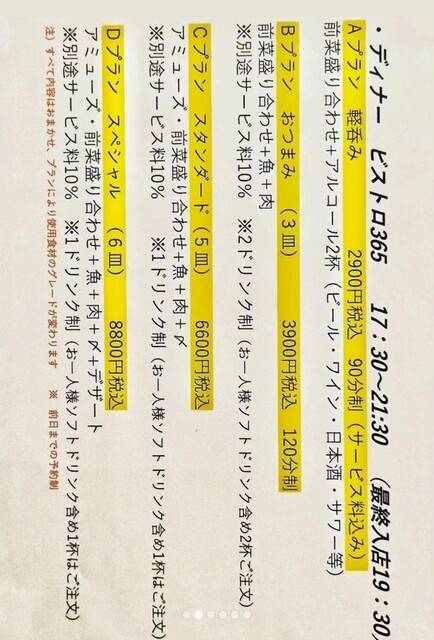 ・ディナー　ビストロ365　17：30～21:30　（最終入店19：30
Aプラン　軽呑み　2900円税込　90分制（サービス料込み）
前菜盛り合わせ+アルコール2杯（ビール・ワイン・日本酒・サワー等）
Bプラン　おつまみ　（3皿）　3900円税込　120分制
前菜盛り合わせ+魚+肉
※別途サービス料10%　※2ドリンク制（お一人様ソフトドリンク含め2杯ご注文）
Cプラン　スタンダード（5皿）　6600円税込
アミューズ・前菜盛り合わせ+魚+肉+〆
※別途サービス料10%　※1ドリンク制（お一人様ソフトドリンク含め1杯はご注文）
Dプラン　スペシャル　（6皿）　8800円税込
アミューズ・前菜盛り合わせ+魚+肉+〆+デザート
※別途サービス料10%　※1ドリンク制（お一人様ソフトドリンク含め1杯はご注文）
注）すべて内容はおまかせ、プランにより使用食材のグレードが変わります　※　前日までの予約制